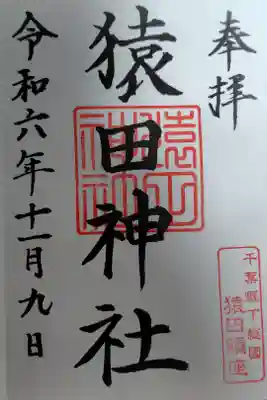 奉拝
千葉縣下総國
猿田鎮座
猿田神社
猿田
神社
令和六年十一月九日